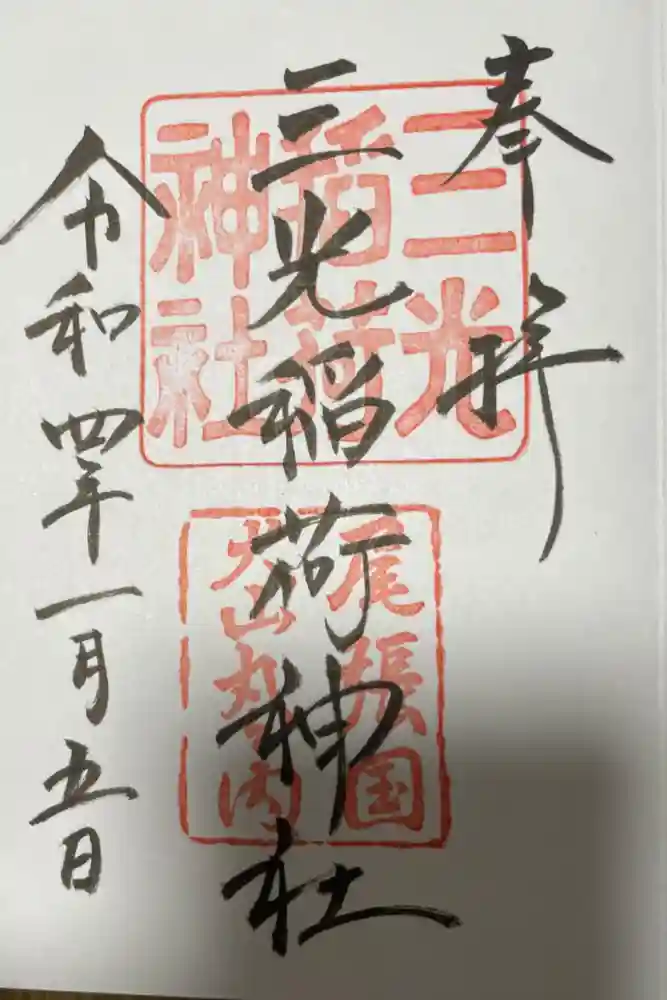 奉拝
三光稲荷神社
令和四年一月五日
三光
稲荷
神社
尾張国
犬山丸の内